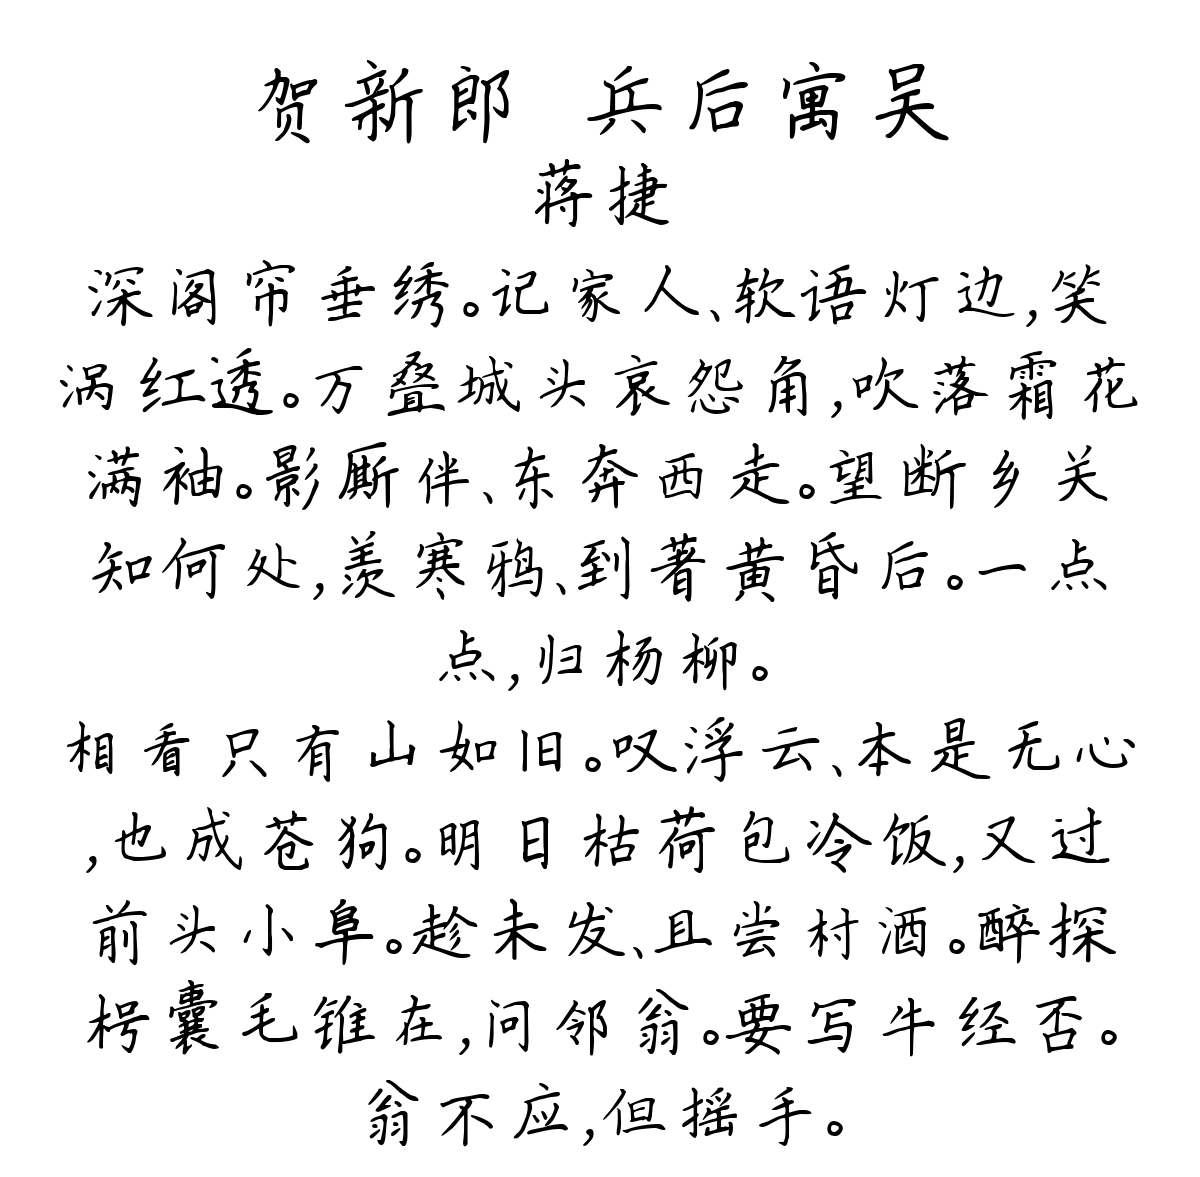 贺新郎 兵后寓吴
蒋捷
深阁帘垂绣。记家人、软语灯边,笑
涡红透。万叠城头哀怨角,吹落霜花
满袖。影厮伴、东奔西走。望断乡关
知何处,羡寒鸦、到著黄昏后。一点
点,归杨柳。
相看只有山如旧。叹浮云、本是无心
,也成苍狗。明日枯荷包冷饭,又过
前头小阜。趁未发、且尝村酒。醉探
枵囊毛锥在,问邻翁。要写牛经否。
翁不应,但摇手。